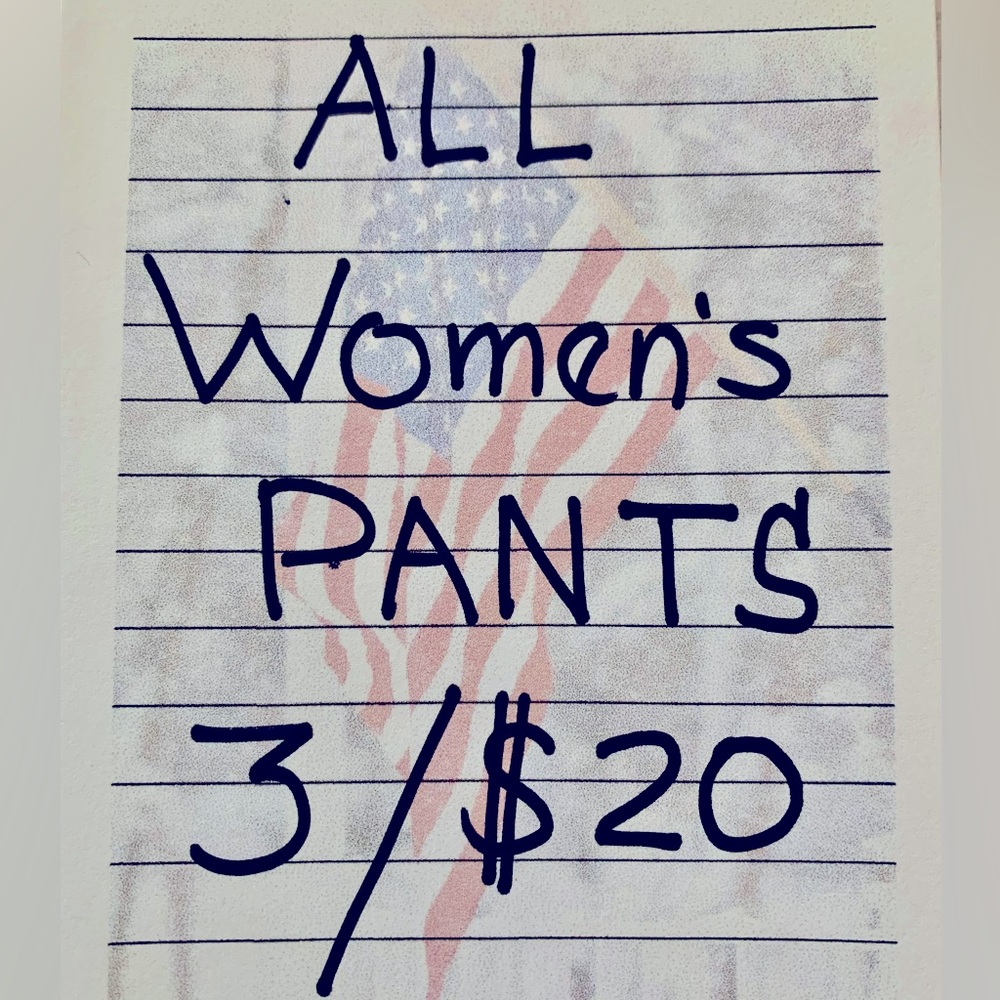 ALL
Women's
PANTS
3/$20